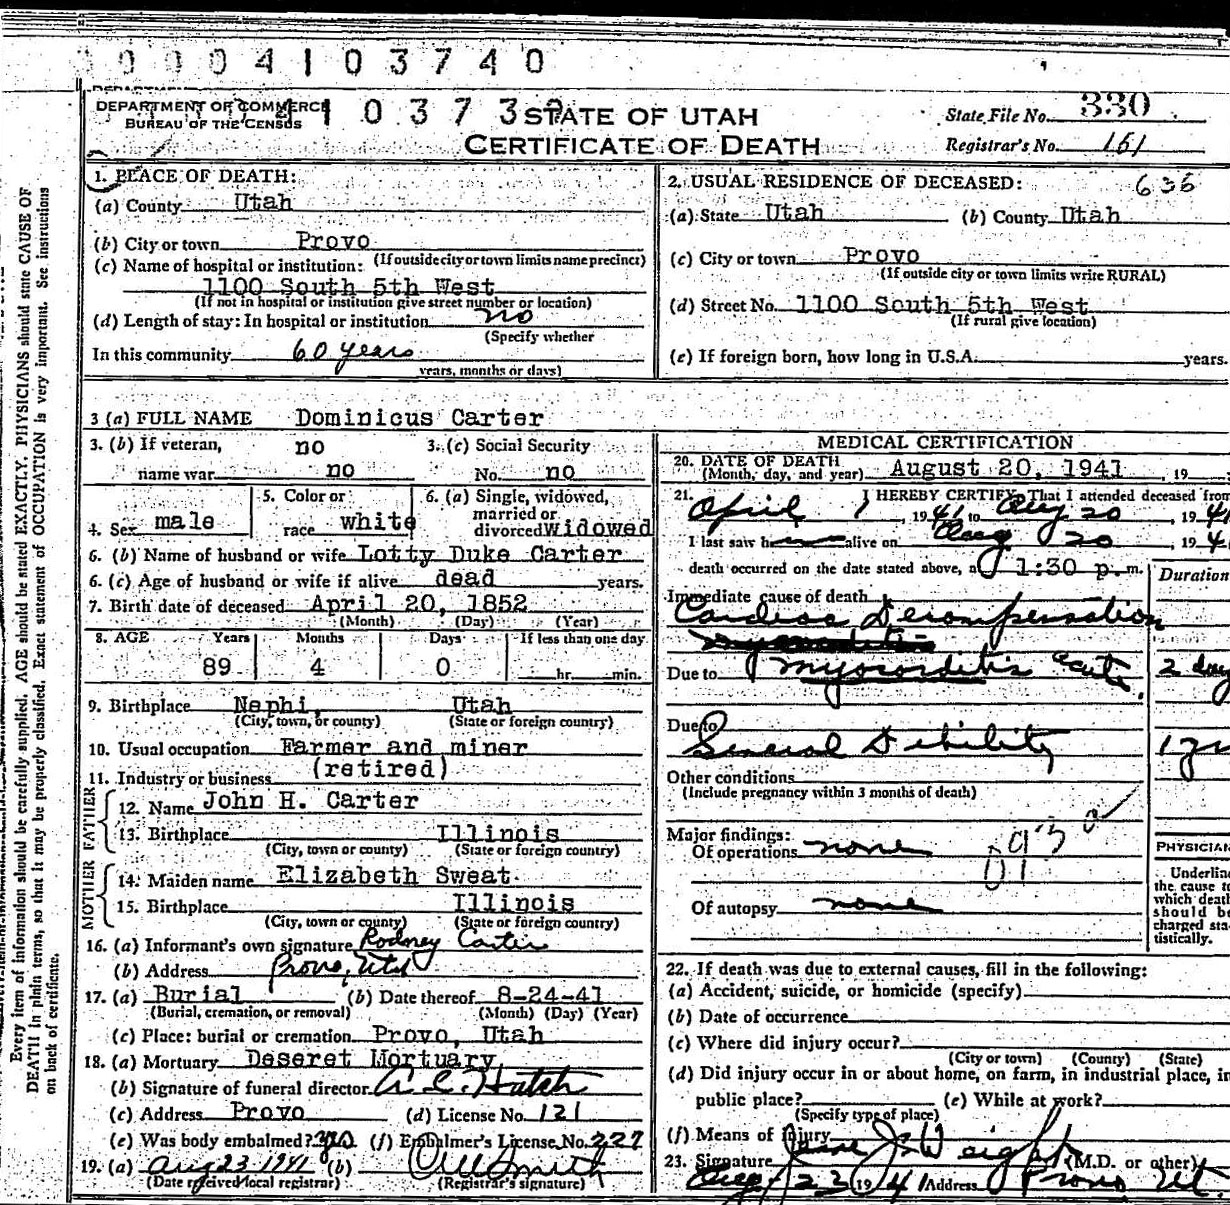 0 0 0 4 1 0 3 7 4 0
DEPARTMENT OF COMMERCE
BUREAU OF THE CENSUS
STATE OF UTAH
CERTIFICATE OF DEATH
State File No. 330
Registrar's No. 161
1. PLACE OF DEATH:
(a) County Utah
(b) City or town Provo
(If outside city or town limits name precinct)
(c) Name of hospital or institution:
1100 South 5th West
(If not in hospital or institution give street number or location)
(d) Length of stay: In hospital or institution no
(Specify whether
In this community 60 years
years, months or days)
2. USUAL RESIDENCE OF DECEASED: 636
(a) State Utah (b) County Utah
(c) City or town Provo
(If outside city or town limits write RURAL)
(d) Street No. 1100 South 5th West
(If rural give location)
(e) If foreign born, how long in U.S.A. years.
3 (a) FULL NAME Dominicus Carter
3. (b) If veteran, no 3. (c) Social Security
name war no No. no
4. Sex male
5. Color or
race white
6. (a) Single, widowed,
married or
divorced Widowed
6. (b) Name of husband or wife Lotty Duke Carter
6. (c) Age of husband or wife if alive dead years.
7. Birth date of deceased April 20, 1852
(Month) (Day) (Year)
8. AGE Years Months Days If less than one day
89 4 0 hr. min.
9. Birthplace Nephi, Utah
(City, town, or county) (State or foreign country)
10. Usual occupation Farmer and miner
11. Industry or business (retired)
FATHER
12. Name John H. Carter
13. Birthplace Illinois
(City, town or county) (State or foreign country)
MOTHER
14. Maiden name Elizabeth Sweat
15. Birthplace Illinois
(City, town or county) (State or foreign country)
16. (a) Informant's own signature Rodney Carter
(b) Address Provo, Utah
17. (a) Burial (b) Date thereof 8-24-41
(Burial, cremation, or removal) (Month) (Day) (Year)
(c) Place: burial or cremation Provo, Utah
18. (a) Mortuary Deseret Mortuary
(b) Signature of funeral director A. C. Hatch
(c) Address Provo (d) License No. 121
(e) Was body embalmed? yes (f) Embalmer's License No. 227
19. (a) Aug 23 1941 (b) Smith
(Date received local registrar) (Registrar's signature)
MEDICAL CERTIFICATION
20. DATE OF DEATH
(Month, day, and year) August 20, 1941, 19
21. I HEREBY CERTIFY, That I attended deceased from
April 1, 1941 to Aug 20, 194
I last saw h alive on Aug 20, 194
death occurred on the date stated above, a 1:30 p.m.
Duration
Immediate cause of death
Cardiac Decompensation
Due to myocarditis acute. 2 day
Due to
General Debility 1 y
Other conditions
(Include pregnancy within 3 months of death)
Major findings:
Of operations none
Of autopsy none
PHYSICIAN
Underline
the cause to
which death
should be
charged sta-
tistically.
22. If death was due to external causes, fill in the following:
(a) Accident, suicide, or homicide (specify)
(b) Date of occurrence
(c) Where did injury occur?
(City or town) (County) (State)
(d) Did injury occur in or about home, on farm, in industrial place, in
public place? (e) While at work?
(Specify type of place)
(f) Means of injury
23. Signature (M.D. or other)
Aug 23 1941 Address Provo Ut.
Every item of information should be carefully supplied. AGE should be stated EXACTLY. PHYSICIANS should state CAUSE OF
DEATH in plain terms, so that it may be properly classified. Exact statement of OCCUPATION is very important. See instructions
on back of certificate.